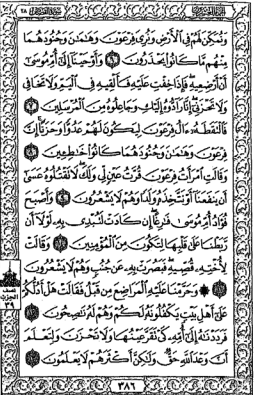 وَنُمَكِّنَ لَهُمْ فِي ٱلْأَرْضِ وَنُرِىَ فِرْعَوْنَ وَهَٰمَٰنَ وَجُنُودَهُمَا
مِنْهُم مَّا كَانُوا۟ يَحْذَرُونَ ٦ وَأَوْحَيْنَآ إِلَىٰٓ أُمِّ مُوسَىٰٓ
أَنْ أَرْضِعِيهِ فَإِذَا خِفْتِ عَلَيْهِ فَأَلْقِيهِ فِي ٱلْيَمِّ وَلَا تَخَافِي
وَلَا تَحْزَنِيٓ إِنَّا رَآدُّوهُ إِلَيْكِ وَجَاعِلُوهُ مِنَ ٱلْمُرْسَلِينَ ٧
فَٱلْتَقَطَهُۥٓ ءَالُ فِرْعَوْنَ لِيَكُونَ لَهُمْ عَدُوًّا وَحَزَنًا إِنَّ
فِرْعَوْنَ وَهَٰمَٰنَ وَجُنُودَهُمَا كَانُوا۟ خَٰطِـِٔينَ ٨
وَقَالَتِ ٱمْرَأَتُ فِرْعَوْنَ قُرَّتُ عَيْنٍ لِّي وَلَكَ لَا تَقْتُلُوهُ عَسَىٰٓ
أَن يَنفَعَنَآ أَوْ نَتَّخِذَهُۥ وَلَدًا وَهُمْ لَا يَشْعُرُونَ ٩ وَأَصْبَحَ
فُؤَادُ أُمِّ مُوسَىٰ فَٰرِغًا إِن كَادَتْ لَتُبْدِي بِهِۦ لَوْلَآ أَن
رَّبَطْنَا عَلَىٰ قَلْبِهَا لِتَكُونَ مِنَ ٱلْمُؤْمِنِينَ ١٠ وَقَالَتْ
لِأُخْتِهِۦ قُصِّيهِ فَبَصُرَتْ بِهِۦ عَن جُنُبٍ وَهُمْ لَا يَشْعُرُونَ
١١ ۞ وَحَرَّمْنَا عَلَيْهِ ٱلْمَرَاضِعَ مِن قَبْلُ فَقَالَتْ هَلْ أَدُلُّكُمْ
عَلَىٰٓ أَهْلِ بَيْتٍ يَكْفُلُونَهُۥ لَكُمْ وَهُمْ لَهُۥ نَٰصِحُونَ ١٢
فَرَدَدْنَٰهُ إِلَىٰٓ أُمِّهِۦ كَيْ تَقَرَّ عَيْنُهَا وَلَا تَحْزَنَ وَلِتَعْلَمَ
أَنَّ وَعْدَ ٱللَّهِ حَقٌّ وَلَٰكِنَّ أَكْثَرَهُمْ لَا يَعْلَمُونَ ١٣
نصف
الحزب
٣٩
٣٨٦